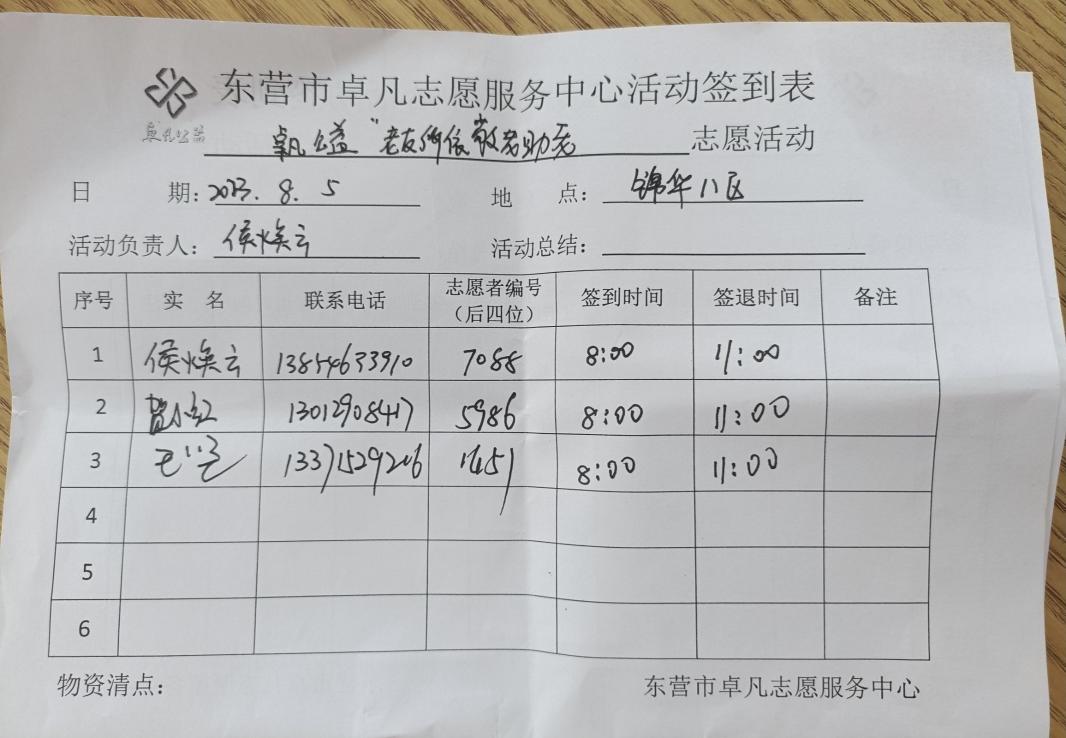 东营市卓凡志愿服务中心活动签到表
卓凡公益
卓凡公益“老有所依敬老助老 志愿活动
日 期：2023.8.5 地 点：锦华八区
活动负责人：侯焕云 活动总结：
序号 实 名 联系电话 志愿者编号（后四位） 签到时间 签退时间 备注
1 侯焕云 13854633910 7088 8:00 11:00
2 贾小红 13012908417 5986 8:00 11:00
3 13371529206 1451 8:00 11:00
4
5
6
物资清点： 东营市卓凡志愿服务中心